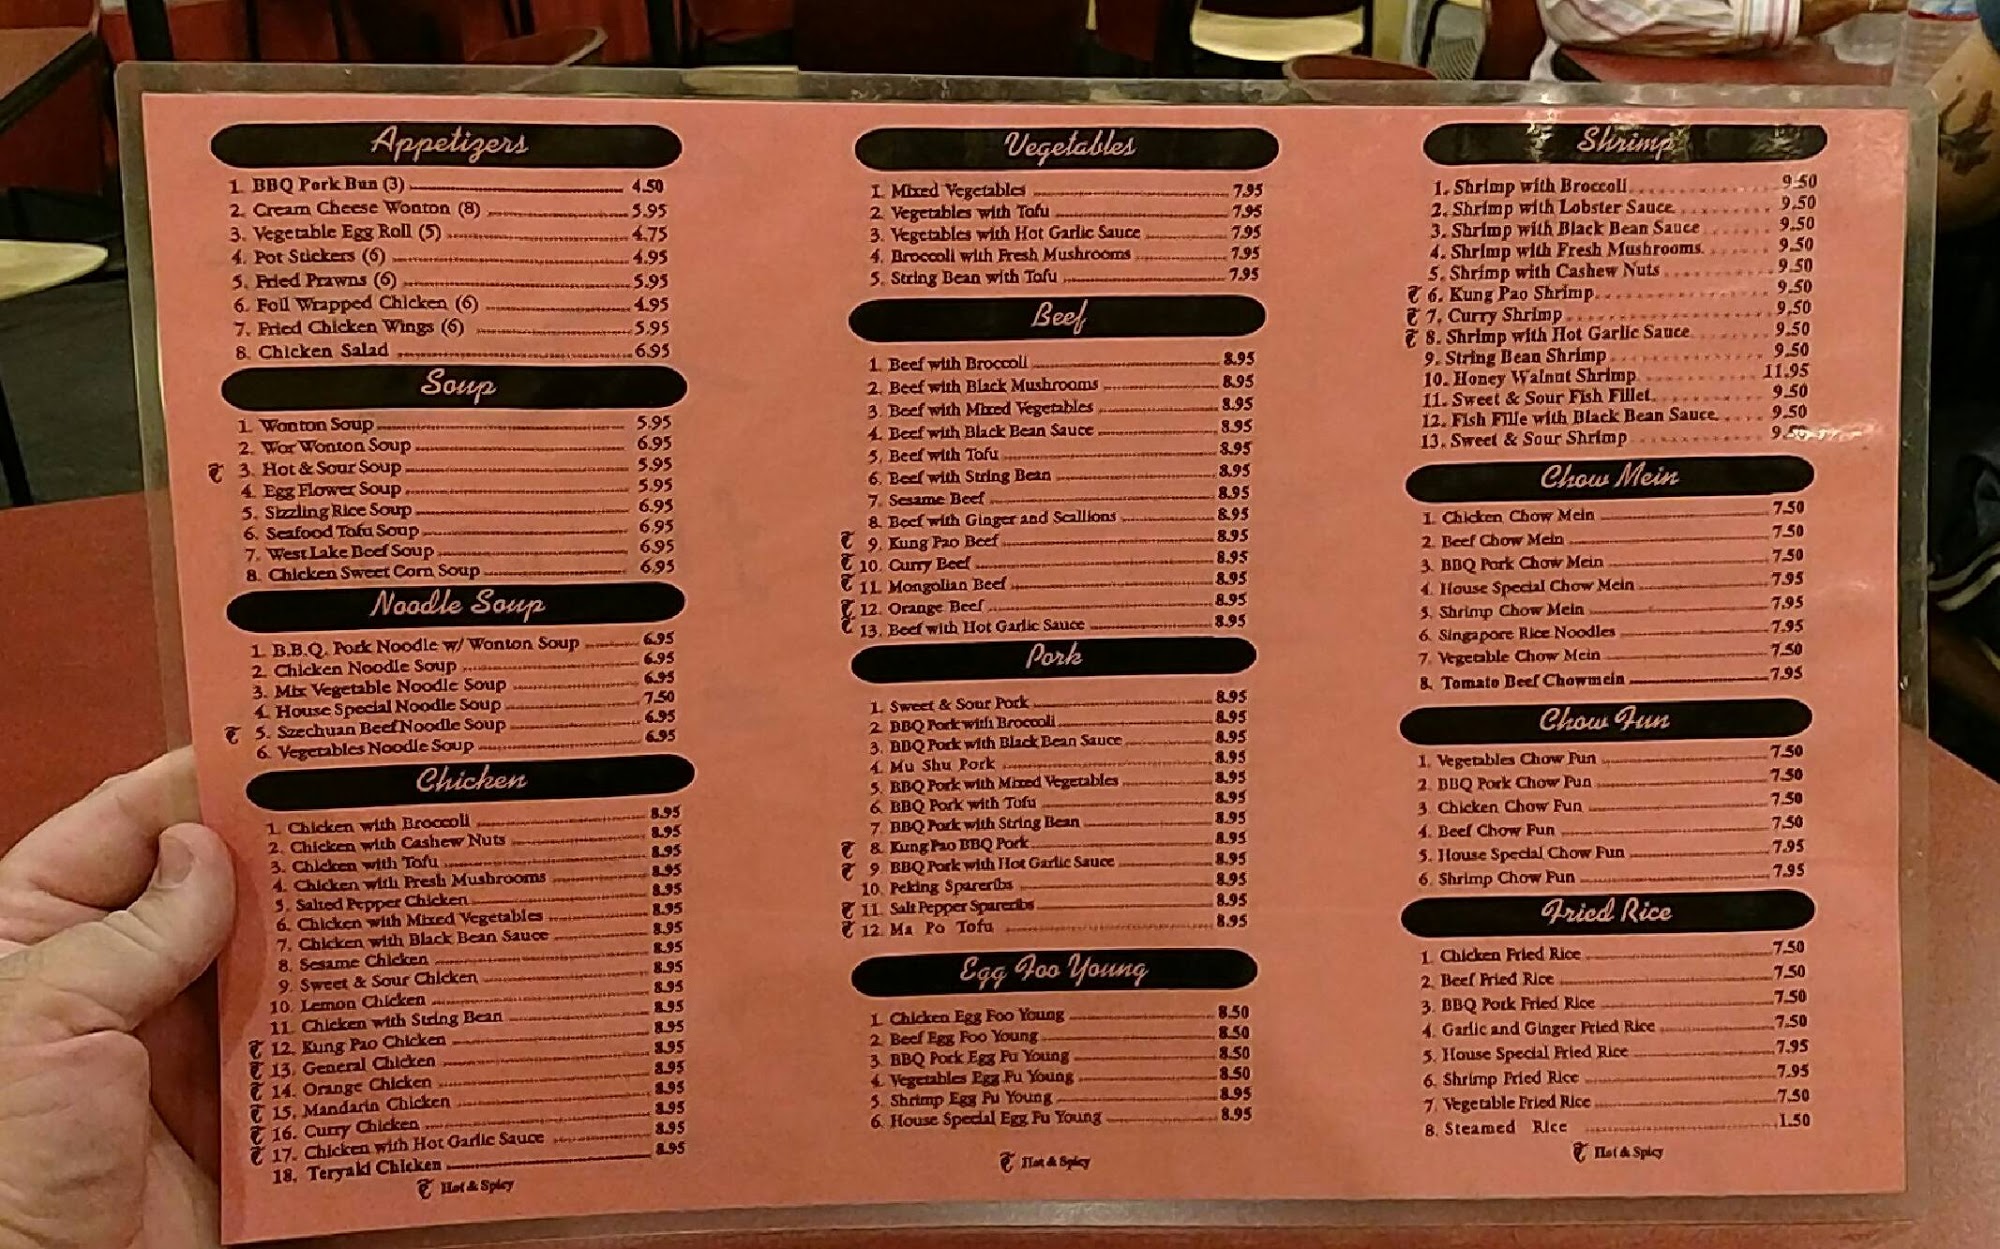 Appetizers
1. BBQ Pork Bun (3) 4.50
2. Cream Cheese Wonton (8) 5.95
3. Vegetable Egg Roll (5) 4.75
4. Pot Stickers (6) 4.95
5. Fried Prawns (6) 5.95
6. Foil Wrapped Chicken (6) 4.95
7. Fried Chicken Wings (6) 5.95
8. Chicken Salad 6.95
Soup
1. Wonton Soup 5.95
2. Wor Wonton Soup 6.95
3. Hot & Sour Soup 5.95
4. Egg Flower Soup 5.95
5. Sizzling Rice Soup 6.95
6. Seafood Tofu Soup 6.95
7. West Lake Beef Soup 6.95
8. Chicken Sweet Corn Soup 6.95
Noodle Soup
1. B.B.Q. Pork Noodle w/ Wonton Soup 6.95
2. Chicken Noodle Soup 6.95
3. Mix Vegetable Noodle Soup 6.95
4. House Special Noodle Soup 7.50
5. Szechuan Beef Noodle Soup 6.95
6. Vegetables Noodle Soup 6.95
Chicken
1. Chicken with Broccoli 8.95
2. Chicken with Cashew Nuts 8.95
3. Chicken with Tofu 8.95
4. Chicken with Fresh Mushrooms 8.95
5. Salted Pepper Chicken 8.95
6. Chicken with Mixed Vegetables 8.95
7. Chicken with Black Bean Sauce 8.95
8. Sesame Chicken 8.95
9. Sweet & Sour Chicken 8.95
10. Lemon Chicken 8.95
11. Chicken with String Bean 8.95
12. Kung Pao Chicken 8.95
13. General Chicken 8.95
14. Orange Chicken 8.95
15. Mandarin Chicken 8.95
16. Curry Chicken 8.95
17. Chicken with Hot Garlic Sauce 8.95
18. Teryaki Chicken 8.95
Hot & Spicy
Vegetables
1. Mixed Vegetables 7.95
2. Vegetables with Tofu 7.95
3. Vegetables with Hot Garlic Sauce 7.95
4. Broccoli with Fresh Mushrooms 7.95
5. String Bean with Tofu 7.95
Beef
1. Beef with Broccoli 8.95
2. Beef with Black Mushrooms 8.95
3. Beef with Mixed Vegetables 8.95
4. Beef with Black Bean Sauce 8.95
5. Beef with Tofu 8.95
6. Beef with String Bean 8.95
7. Sesame Beef 8.95
8. Beef with Ginger and Scallions 8.95
9. Kung Pao Beef 8.95
10. Curry Beef 8.95
11. Mongolian Beef 8.95
12. Orange Beef 8.95
13. Beef with Hot Garlic Sauce 8.95
Pork
1. Sweet & Sour Pork 8.95
2. BBQ Pork with Broccoli 8.95
3. BBQ Pork with Black Bean Sauce 8.95
4. Mu Shu Pork 8.95
5. BBQ Pork with Mixed Vegetables 8.95
6. BBQ Pork with Tofu 8.95
7. BBQ Pork with String Bean 8.95
8. Kung Pao BBQ Pork 8.95
9. BBQ Pork with Hot Garlic Sauce 8.95
10. Peking Spareribs 8.95
11. Salt Pepper Spareribs 8.95
12. Ma Po Tofu 8.95
Egg Foo Young
1. Chicken Egg Foo Young 8.50
2. Beef Egg Foo Young 8.50
3. BBQ Pork Egg Fu Young 8.50
4. Vegetables Egg Fu Young 8.50
5. Shrimp Egg Fu Young 8.95
6. House Special Egg Fu Young 8.95
Hot & Spicy
Shrimp
1. Shrimp with Broccoli 9.50
2. Shrimp with Lobster Sauce 9.50
3. Shrimp with Black Bean Sauce 9.50
4. Shrimp with Fresh Mushrooms 9.50
5. Shrimp with Cashew Nuts 9.50
6. Kung Pao Shrimp 9.50
7. Curry Shrimp 9.50
8. Shrimp with Hot Garlic Sauce 9.50
9. String Bean Shrimp 9.50
10. Honey Walnut Shrimp 11.95
11. Sweet & Sour Fish Fillet 9.50
12. Fish Fille with Black Bean Sauce 9.50
13. Sweet & Sour Shrimp 9.50
Chow Mein
1. Chicken Chow Mein 7.50
2. Beef Chow Mein 7.50
3. BBQ Pork Chow Mein 7.50
4. House Special Chow Mein 7.95
5. Shrimp Chow Mein 7.95
6. Singapore Rice Noodles 7.95
7. Vegetable Chow Mein 7.50
8. Tomato Beef Chowmein 7.95
Chow Fun
1. Vegetables Chow Fun 7.50
2. BBQ Pork Chow Fun 7.50
3. Chicken Chow Fun 7.50
4. Beef Chow Fun 7.50
5. House Special Chow Fun 7.95
6. Shrimp Chow Fun 7.95
Fried Rice
1. Chicken Fried Rice 7.50
2. Beef Fried Rice 7.50
3. BBQ Pork Fried Rice 7.50
4. Garlic and Ginger Fried Rice 7.50
5. House Special Fried Rice 7.95
6. Shrimp Fried Rice 7.95
7. Vegetable Fried Rice 7.50
8. Steamed Rice 1.50
Hot & Spicy